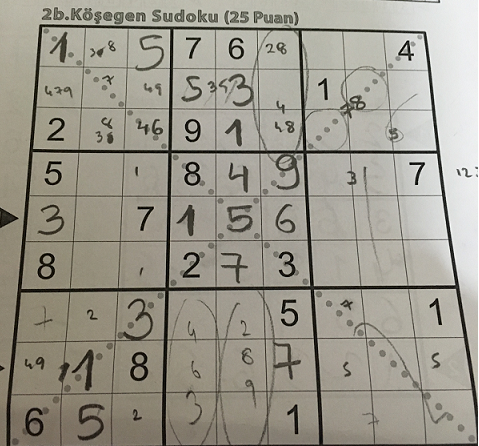 2b.Köşegen Sudoku (25 Puan)
1 8 5 7 6 28 4
479 49 5 3 4 1 8
2 8 3 46 9 1 48 5
5 1 8 4 9 3 1 7
3 7 1 5 6
8 2 7 3
7 2 3 4 2 5 1
49 1 8 6 8 7 5 5
6 5 2 3 9 1 7